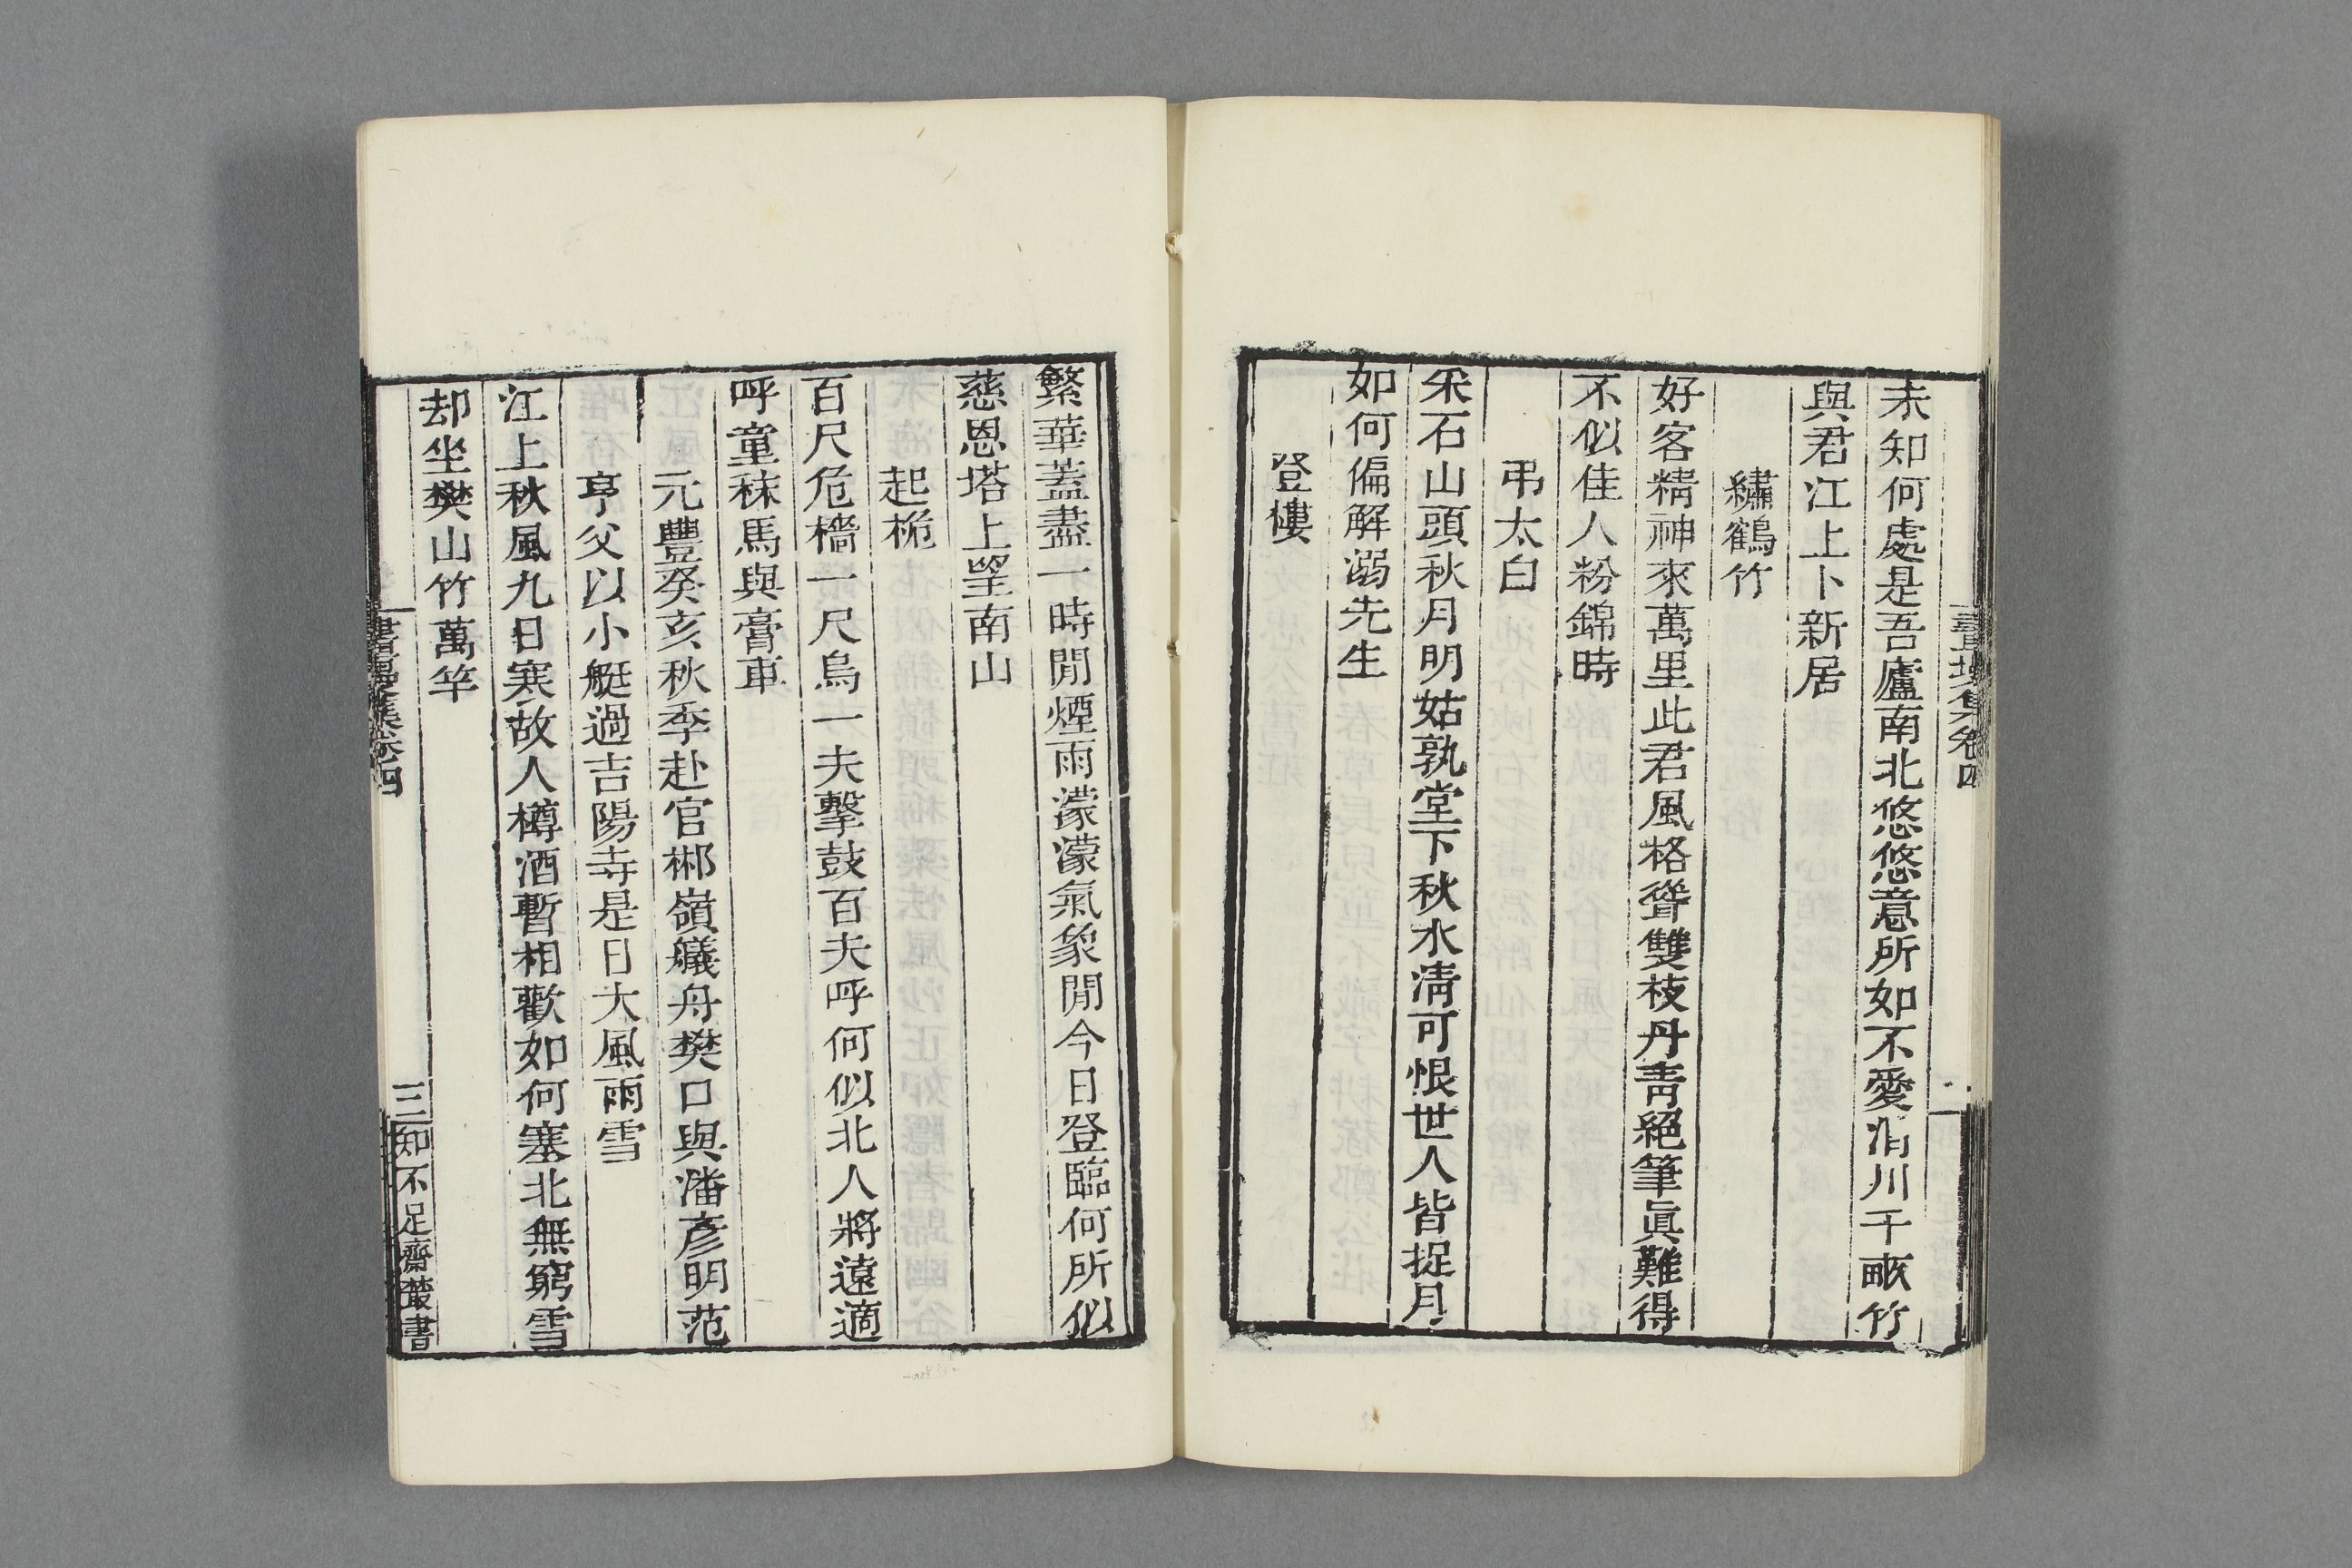 未知何處是吾廬南北悠悠意所如不愛渭川千畝竹
與君江上卜新居
繡鶴竹
好客精神來萬里此君風格聳雙枝丹靑絕筆眞難得
不似佳人粉錦時
弔太白
采石山頭秋月明姑孰堂下秋水淸可恨世人皆捉月
如何偏解溺先生
登樓
繁華蓋盡一時閒煙雨濛濛氣象閒今日登臨何所似
慈恩塔上望南山
起桅
百尺危檣一尺烏一夫擊鼓百夫呼何似北人將遠適
呼童秣馬與膏車
元豐癸亥秋季赴官郴嶺艤舟樊口與潘彥明范
亨父以小艇過吉陽寺是日大風雨雪
江上秋風九日寒故人樽酒暫相歡如何塞北無窮雪
却坐樊山竹萬竿
畫墁集卷四
三
知不足齋叢書